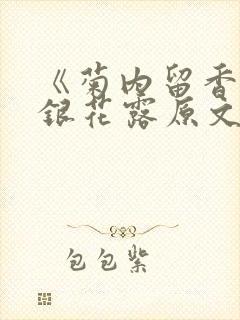 《菊内留香
银花露原文
包包紫